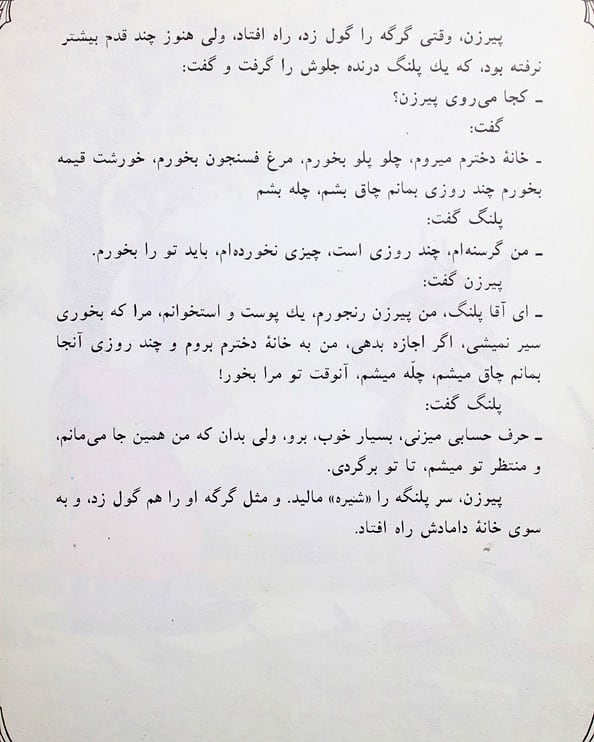 پیرزن، وقتی گرگه را گول زد، راه افتاد، ولی هنوز چند قدم بیشتر
نرفته بود، که یك پلنگ درنده جلوش را گرفت و گفت:
ـ کجا می‌روی پیرزن؟
گفت:
ـ خانهٔ دخترم میروم، چلو پلو بخورم، مرغ فسنجون بخورم، خورشت قیمه
بخورم چند روزی بمانم چاق بشم، چله بشم
پلنگ گفت:
ـ من گرسنه‌ام، چند روزی است، چیزی نخورده‌ام، باید تو را بخورم.
پیرزن گفت:
ـ ای آقا پلنگ، من پیرزن رنجورم، یك پوست و استخوانم، مرا که بخوری
سیر نمیشی، اگر اجازه بدهی، من به خانهٔ دخترم بروم و چند روزی آنجا
بمانم چاق میشم، چلّه میشم، آنوقت تو مرا بخور!
پلنگ گفت:
ـ حرف حسابی میزنی، بسیار خوب، برو، ولی بدان که من همین جا می‌مانم،
و منتظر تو میشم، تا تو برگردی.
پیرزن، سر پلنگه را «شیره» مالید. و مثل گرگه او را هم گول زد، و به
سوی خانهٔ دامادش راه افتاد.